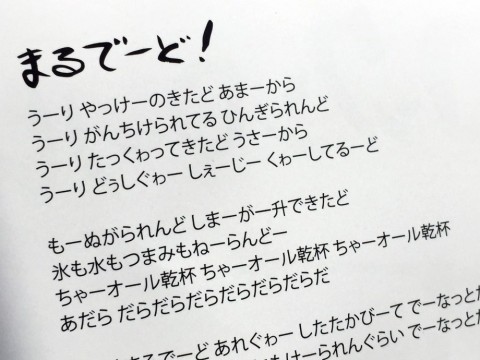 まるでーど！
うーり やっけーのきたど あまーから
うーり がんちけられてる ひんぎられんど
うーり たっくゎってきたど うさーから
うーり どぅしぐゎー しぇーじー くゎーしてるーど
もーぬがられんど しまーが一升できたど
氷も水もつまみもねーらんどー
ちゃーオール乾杯 ちゃーオール乾杯 ちゃーオール乾杯
あだら だらだらだらだらだらだらだ
でーど あれぐゎー したたかびーて でーなっとた
られんぐらい でーなった